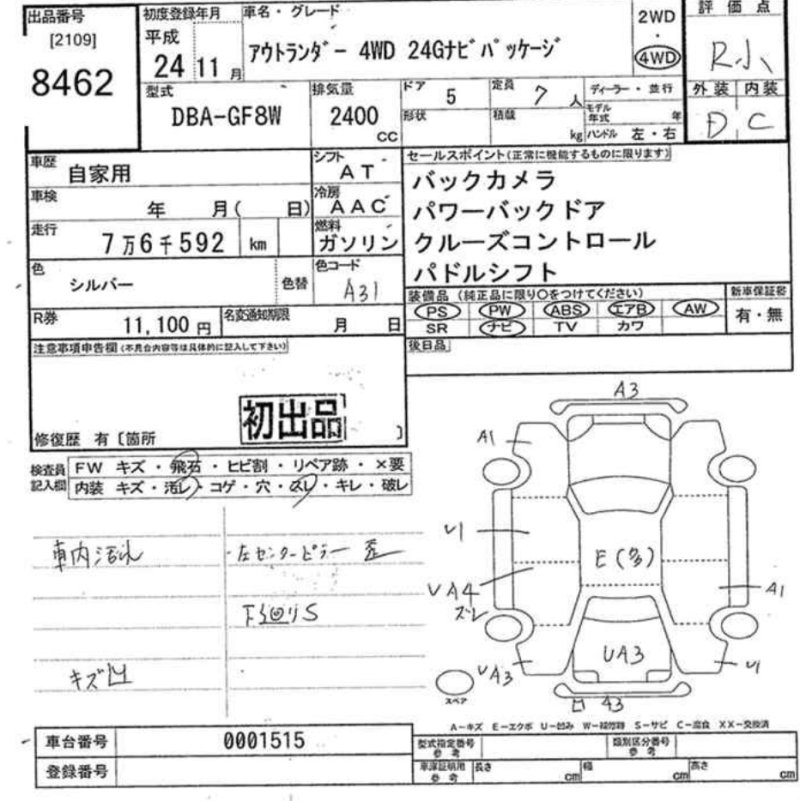 出品番号
[2109]
8462
初度登録年月
平成
24 11 月
車名・グレード
アウトランダー 4WD 24Gナビパッケージ
2WD
・
4WD
評価点
R小
型式
DBA-GF8W
排気量
2400
CC
ドア
5
定員
7 人
ディーラー・並行
形状
積載
kg
モデル年式 年
ハンドル 左・右
外装 内装
D C
車歴
自家用
シフト
AT
車検
年 月( 日)
冷房
AAC
走行
7万6千592 km
燃料
ガソリン
色
シルバー
色替
色コード
A31
R券
11,100 円
名変通知期限
月 日
セールスポイント(正常に機能するものに限ります)
バックカメラ
パワーバックドア
クルーズコントロール
パドルシフト
装備品 (純正品に限り○をつけてください)
新車保証書
PS PW ABS エアB AW
有・無
SR ナビ TV カワ
後日品
注意事項申告欄(不具合内容等は具体的に記入して下さい)
初出品
修復歴 有〔箇所 〕
検査員記入欄
FW キズ・飛石・ヒビ割・リペア跡・×要
内装 キズ・汚レ・コゲ・穴・スレ・キレ・破レ
車内汚れ
左センターピラー 歪
下回りS
キズ凹
A3
A1
U1
E(多)
UA4
ズレ
A1
UA3
UA3
U1
A3
スペア
A-キズ E-エクボ U-凹み W-補修跡 S-サビ C-腐食 XX-交換済
車台番号
0001515
登録番号
型式指定番号
参考
類別区分番号
参考
車庫証明用
参考
長さ cm
幅 cm
高さ cm